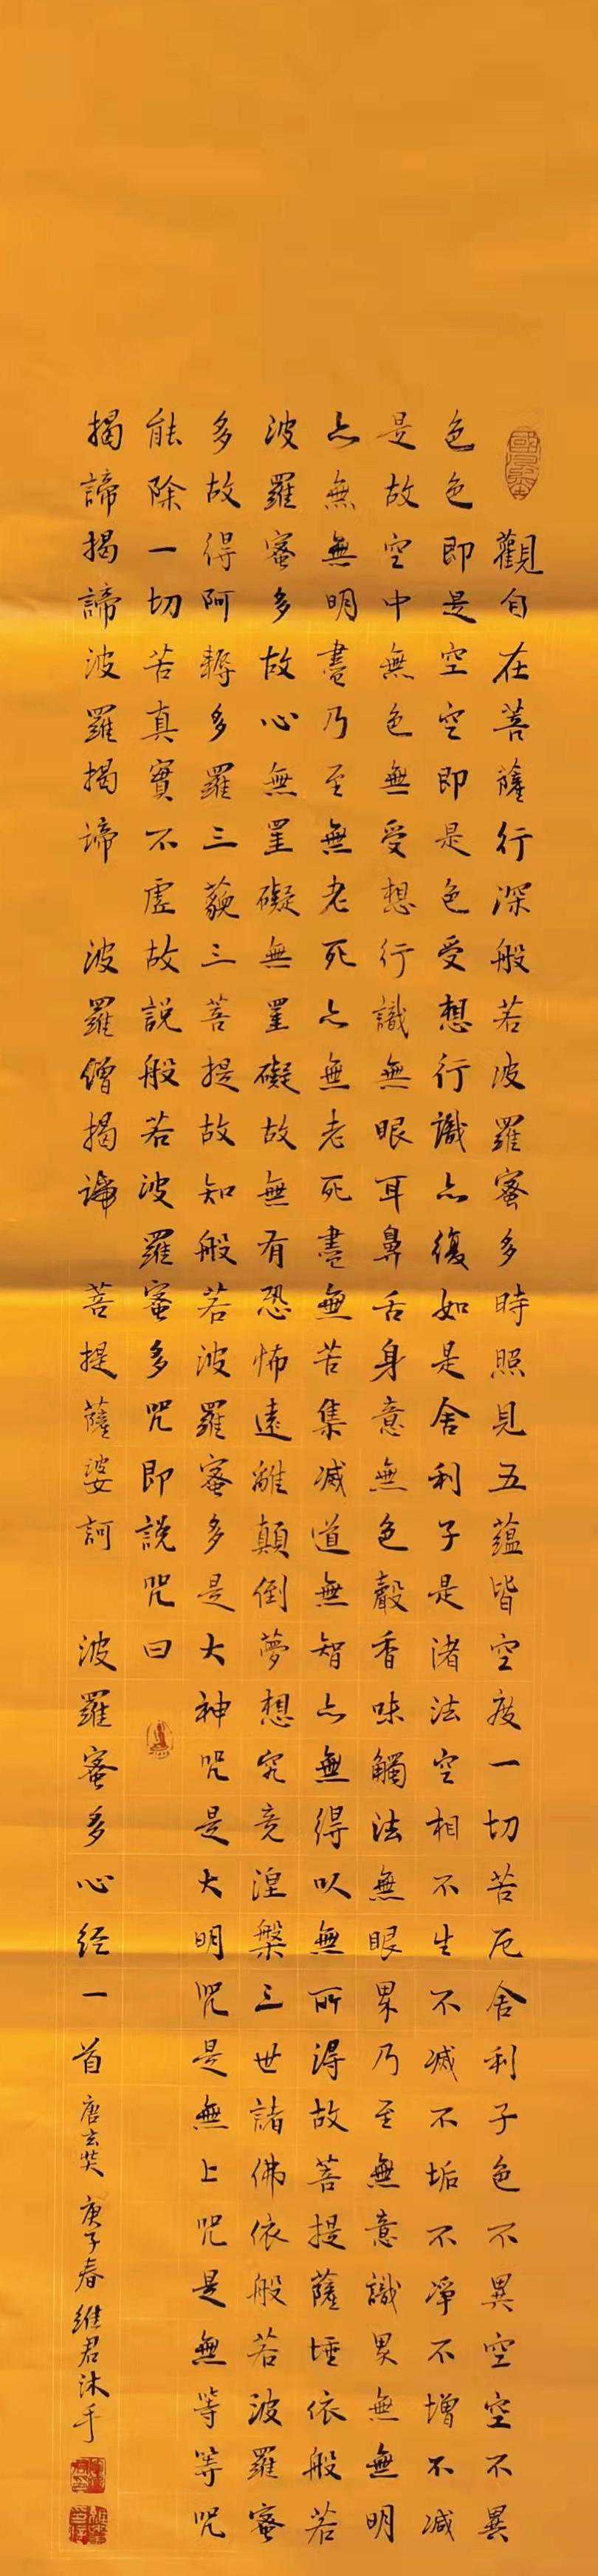 觀自在菩薩行深般若波羅蜜多時照見五蘊皆空度一切苦厄舍利子色不異空空不異
色色即是空空即是色受想行識亦復如是舍利子是諸法空相不生不滅不垢不淨不增不減
是故空中無色無受想行識無眼耳鼻舌身意無色聲香味觸法無眼界乃至無意識界無無明
亦無無明盡乃至無老死亦無老死盡無苦集滅道無智亦無得以無所得故菩提薩埵依般若
波羅蜜多故心無罣礙無罣礙故無有恐怖遠離顛倒夢想究竟涅槃三世諸佛依般若波羅蜜
多故得阿耨多羅三藐三菩提故知般若波羅蜜多是大神咒是大明咒是無上咒是無等等咒
能除一切苦真實不虛故說般若波羅蜜多咒即說咒曰
揭諦揭諦波羅揭諦 波羅僧揭諦 菩提薩婆訶 波羅蜜多心經一首 唐玄奘 庚子春 維君沐手